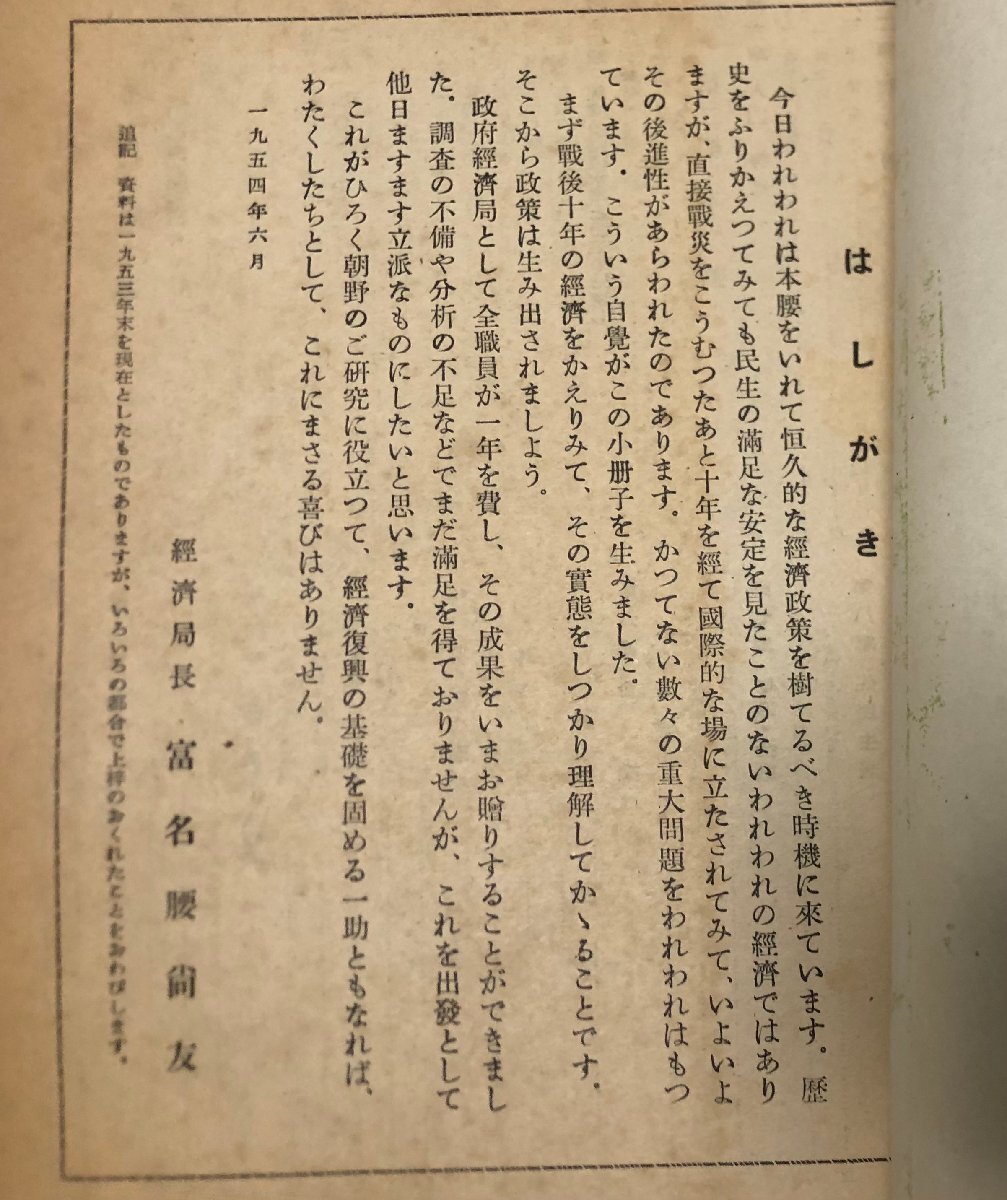 はしがき
今日われわれは本腰をいれて恒久的な經濟政策を樹てるべき時機に來ています．歴
史をふりかえつてみても民生の滿足な安定を見たことのないわれわれの經濟ではあり
ますが、直接戰災をこうむつたあと十年を經て國際的な場に立たされてみて、いよいよ
その後進性があらわれたのであります．かつてない數々の重大問題をわれわれはもつ
ています．こういう自覺がこの小册子を生みました．
まず戰後十年の經濟をかえりみて、その實態をしつかり理解してかゝることです．
そこから政策は生み出されましよう。
政府經濟局として全職員が一年を費し、その成果をいまお贈りすることができまし
た．調査の不備や分析の不足などでまだ滿足を得ておりませんが、これを出發として
他日ますます立派なものにしたいと思います．
これがひろく朝野のご硏究に役立つて、經濟復興の基礎を固める一助ともなれば、
わたくしたちとして、これにまさる喜びはありません。
一九五四年六月
經濟局長 富名腰尙友
追記 資料は一九五三年末を現在としたものでありますが、いろいろの都合で上梓のおくれたことをおわびします．